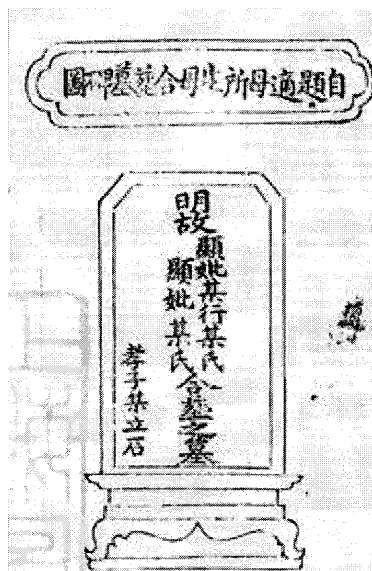 自題適母所生母合葬墓圖
明故
顯妣某行某氏
顯妣某氏
合葬之墓
孝子某立石